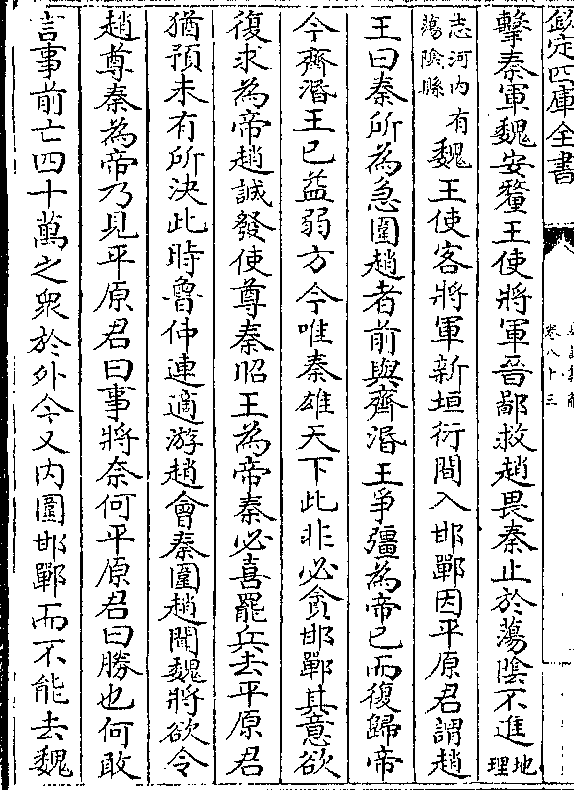 欽定四庫全書
卷八十三
擊秦軍魏安釐王使將軍晉鄙救趙畏秦止於蕩陰不進地理
志河内有蕩陰縣魏王使客將軍新垣衍間入邯鄲因平原君謂趙
王曰秦所為急圍趙者前與齊湣王爭彊為帝已而復歸帝
今齊湣王已益弱方今唯秦雄天下此非必貪邯鄲其意欲
復求為帝趙誠發使尊秦昭王為帝秦必喜罷兵去平原君
猶預未有所決此時魯仲連適游趙會秦圍趙聞魏將欲令
趙尊秦為帝乃見平原君曰事將奈何平原君曰勝也何敢
言事前亡四十萬之衆於外今又内圍邯鄲而不能去魏